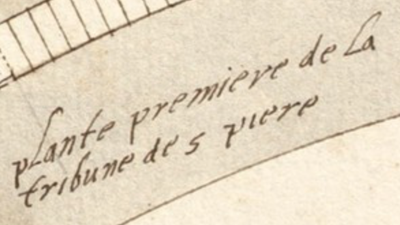 plante premiere de la
tribune de s piere